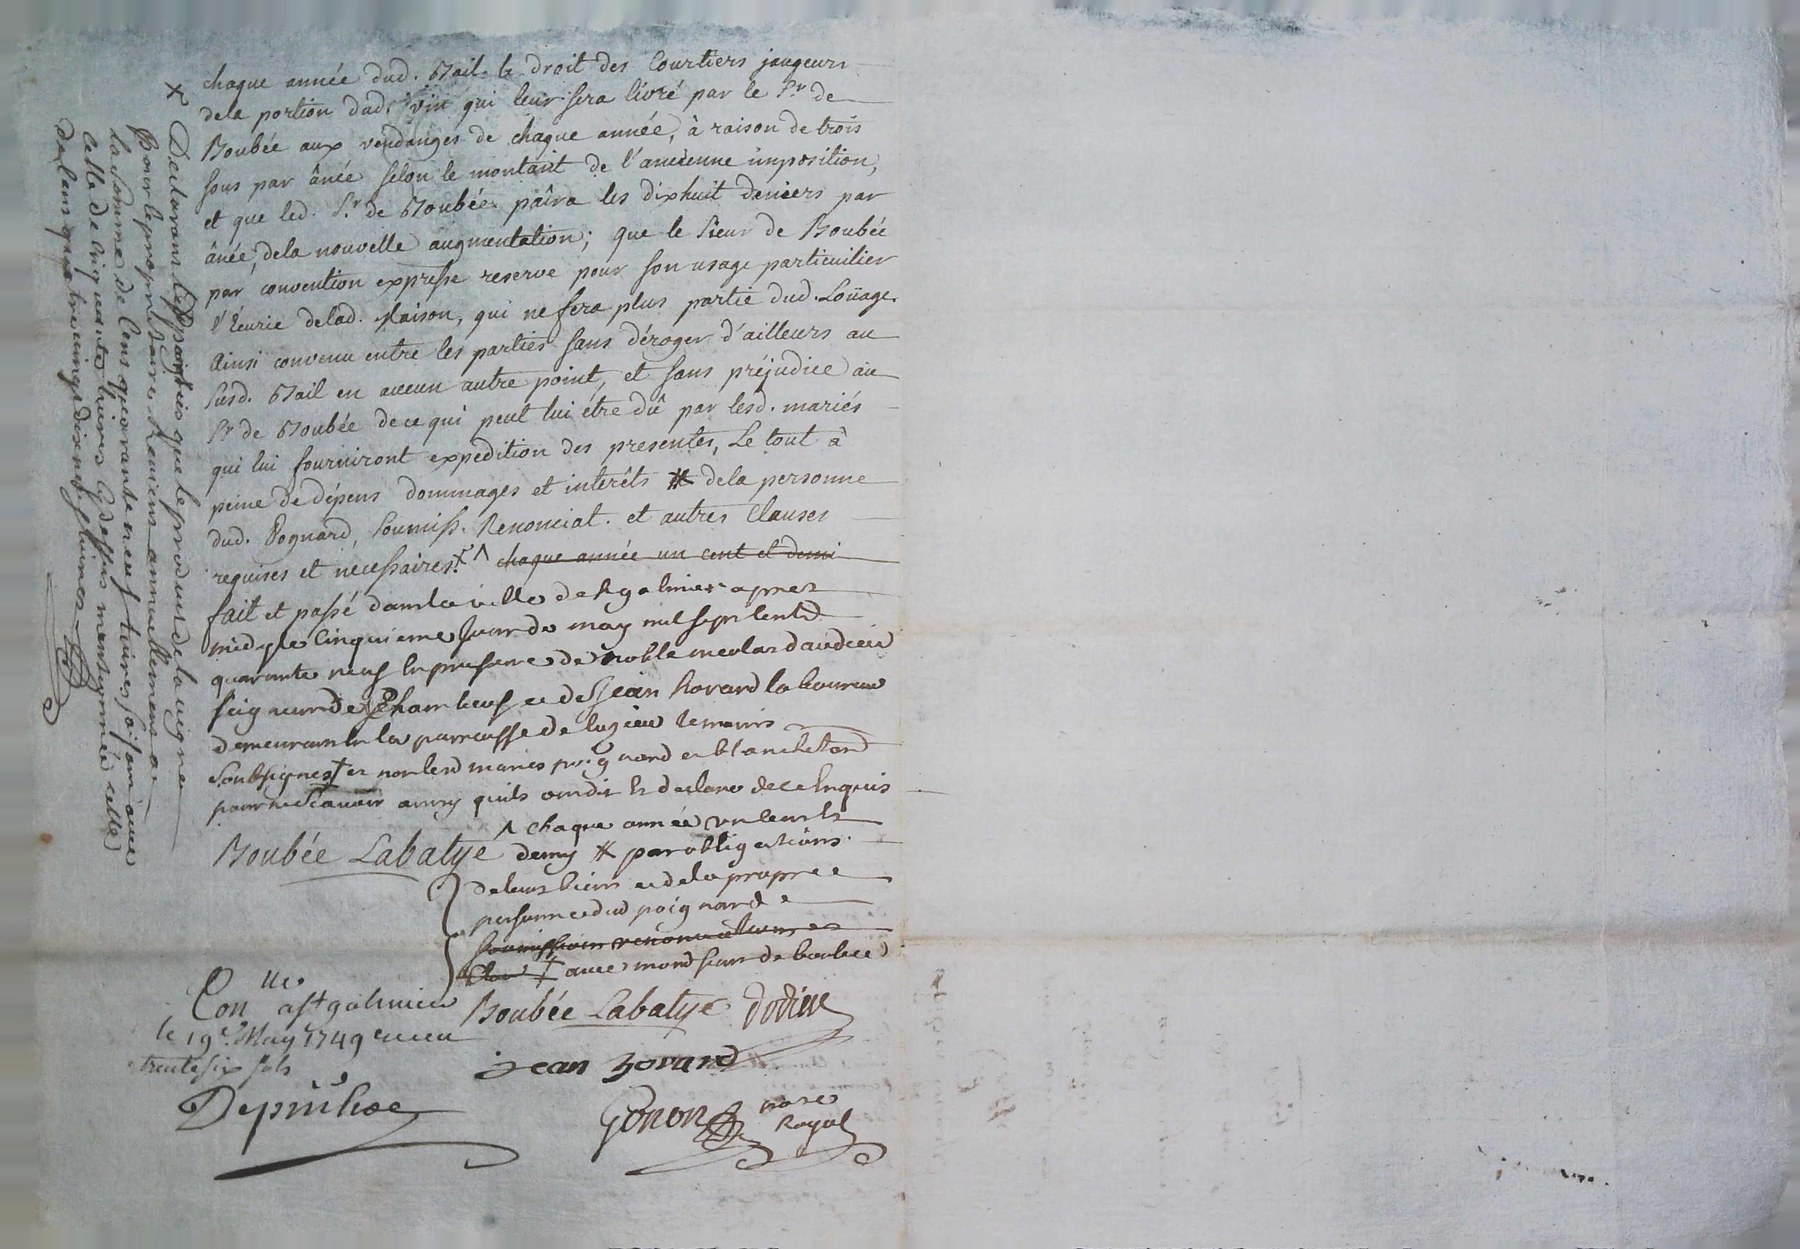 chaque année dud. Bail le droit des Courtiers jaugeurs
dela portion dud. vin qui leur sera livré par le Sr. de
Boubée aux vendanges de chaque année, à raison de trois
sous par ânée selon le montant de l'ancienne imposition,
et que led. Sr. de Boubée païra les dixhuit deniers par
ânée, dela nouvelle augmentation; que le Sieur de Boubée
par convention expresse reserve pour son usage particuilier
l'Ecurie delad. Maison, qui ne fera plus partie dud. Loüage.
Ainsi convenu entre les parties sans déroger d'ailleurs au
susd. Bail en aucun autre point, et sans préjudice au
Sr. de Boubée de ce qui peut lui être dû par lesd. mariés
qui lui fourniront expedition des presentes, Le tout à
peine de dépens dommages et intérêts # dela personne
dud. Pognard, soumiss. Renonciat. et autres Clauses
requises et nécessaires. x ^ chaque année un cent et demi
fait et passé dans la ville de st galmier apres
midy le cinquieme jour de may mil sept cents
quarante neuf en presence de noble nicolas
seigneur de Chambeuf et de sr jean hovard laboureur
demeurant en la parroisse de temoins
soubsignes † et non lesd mariés poignard et blanchetond
pour ne scavoir ainsy quils ont dit et declaré de ce enquis
^ chaque année un cent et
demy # par obligations
Boubée Labatye
de leurs biens et de la propre
personne dud poignard
soumissions renonciations et
† avec mond sieur de boubee
Boubée Labatye dodieu
Jean hovard
Gonon nore
Royal
Con lle a st galmier
le 19e. May 1749 receu
trente six sols
x Declarans lesd parties que le produit de la vigne
pour le proprietaire Revient annuellement a
la somme de Cens quarante neuf livres faisant avec
celle de Cinquante livres cy dessus mentionnée celle
de Cens quatre vingt dix neuf livres